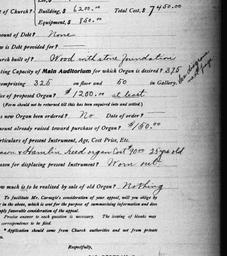 of Church? Building, $6200.00 Total Cost, $7450.00
Equipment, $ 850.00
mount of Debt? None
w is Debt provided for?
urch built of? Wood with stone foundation
ting Capacity of Main Auditorium for which Organ is desired? 375
comprising 325 on floor and 50 in Gallery.
ice of proposed Organ? $1200.00 at least
(Form should not be returned till this has been enquired into and settled.)
s new Organ been ordered? No Date of order?
mount already raised toward purchase of Organ? $150.00
articulars of present Instrument, Age, Cost Price, Etc.
& Hamlin reed organ Cost 25 yrs old
eason for displacing present Instrument? Worn out
ow much is to be realized by sale of old Organ? Nothing
To facilitate Mr. Carnegie's consideration of your appeal, will you oblige by
in the above, which is sent for the purpose of summarizing information and
aply favorable consideration of the appeal.
Precise answer to each question is necessary. The inserting of blanks may
correspondence to be ignored.
* Application should come from Church authorities and not from private
Respectfully,